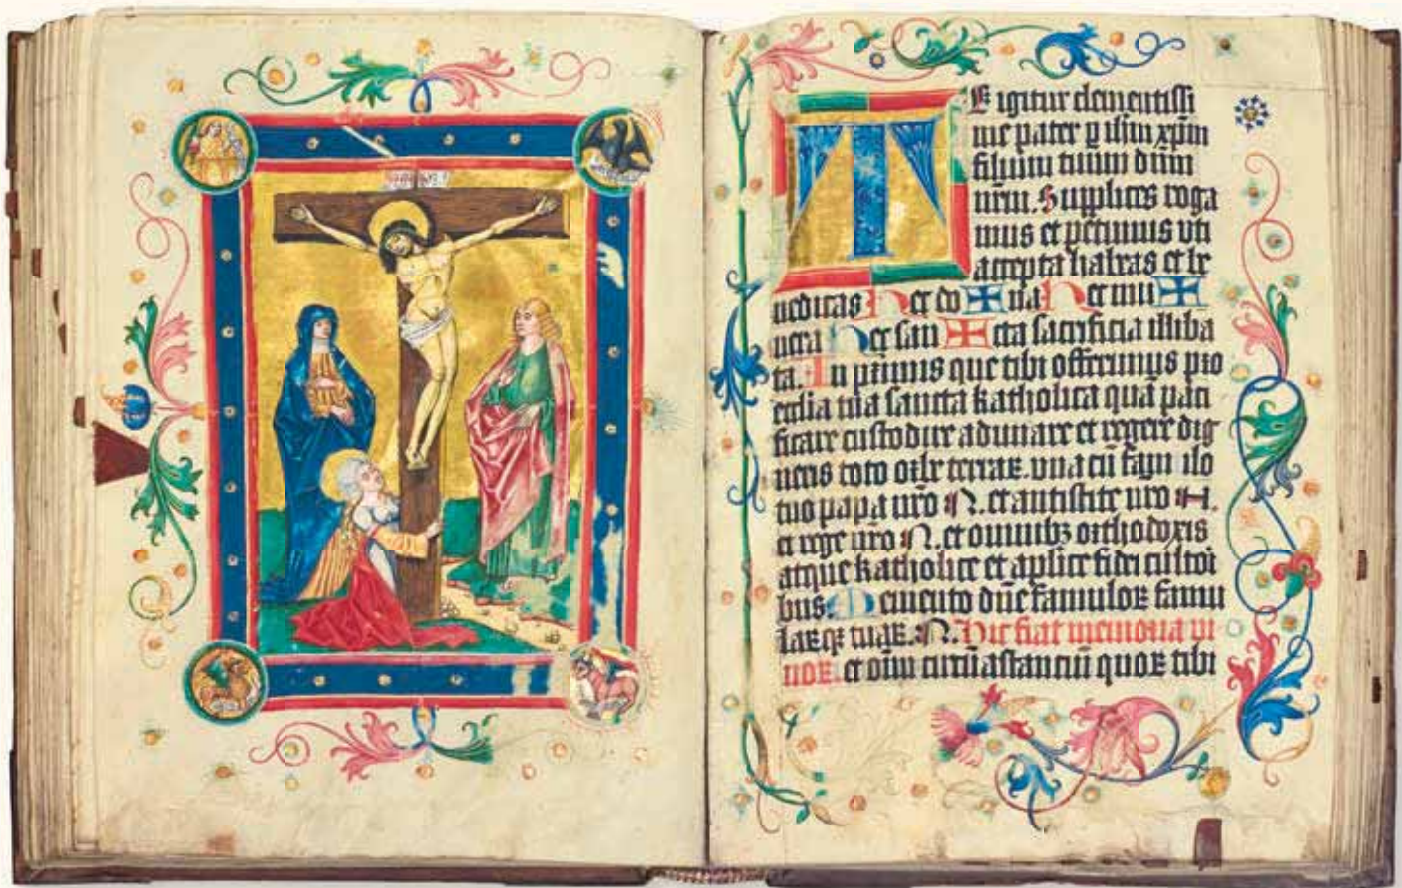 TE igitur clementissi
me pater p ihm xpm
filium tuum dnm
nrm. Supplices roga
mus et petimus vti
accepta habeas et be
nedicas Hec do ✠ na Hec mu ✠
nera Hec san ✠ cta sacrificia illiba
ta. In primis que tibi offerimus pro
ecclia tua sancta katholica quā paci
ficare custodire adunare et regere dig
neris toto orbe terraꝝ. vna cū famlo
tuo papa nro N. et antistite nro N.
et rege nro N. et omnibꝫ orthodoxis
atque katholice et aplice fidei cultori
bus. Memento dne famuloꝝ famu
laꝝqꝫ tuaꝝ. N. Hic fiat memoria vi
uoꝝ. et oīm circūastanciū quoꝝ tibi